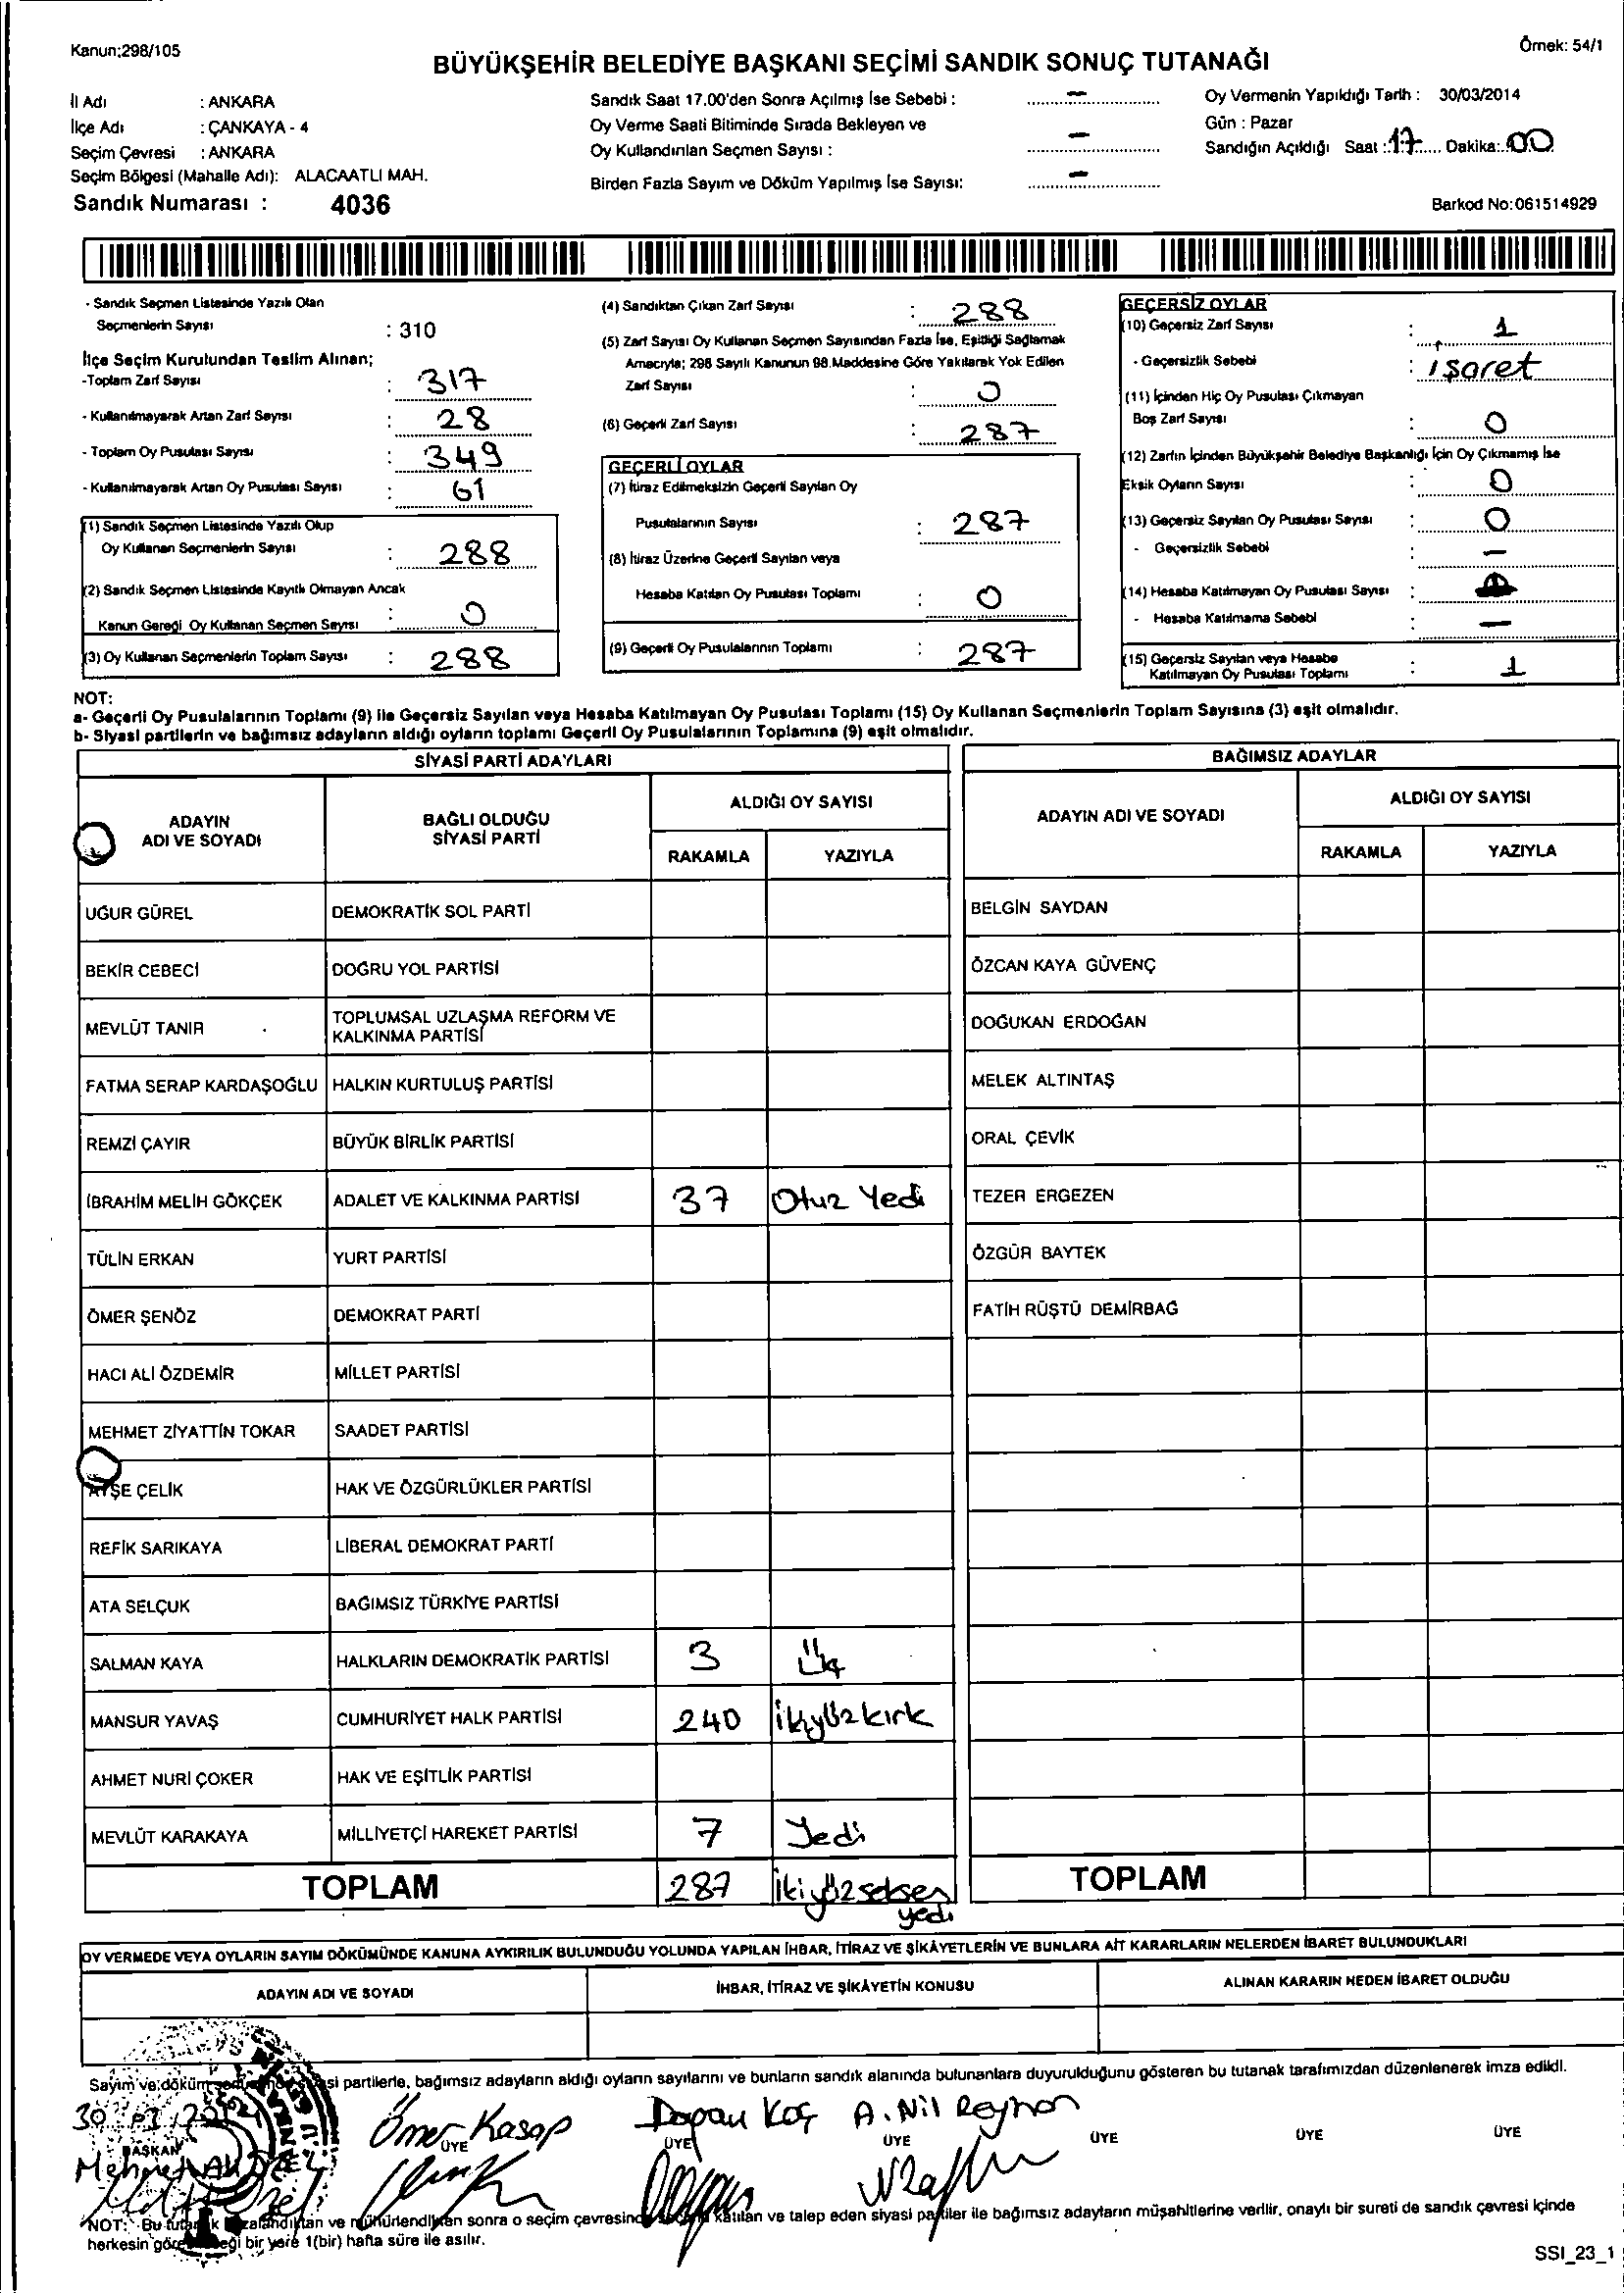 Kanun;298/105
Örnek: 54/1
BÜYÜKŞEHİR BELEDİYE BAŞKANI SEÇİMİ SANDIK SONUÇ TUTANAĞI
İl Adı : ANKARA
İlçe Adı : ÇANKAYA - 4
Seçim Çevresi : ANKARA
Seçim Bölgesi (Mahalle Adı): ALACAATLI MAH.
Sandık Numarası : 4036
Sandık Saat 17.00'den Sonra Açılmış İse Sebebi : -
Oy Verme Saati Bitiminde Sırada Bekleyen ve
Oy Kullandırılan Seçmen Sayısı : -
Birden Fazla Sayım ve Döküm Yapılmış İse Sayısı: -
Oy Vermenin Yapıldığı Tarih : 30/03/2014
Gün : Pazar
Sandığın Açıldığı Saat : 17 Dakika: 00
Barkod No:061514929
- Sandık Seçmen Listesinde Yazılı Olan
Seçmenlerin Sayısı : 310
İlçe Seçim Kurulundan Teslim Alınan;
-Toplam Zarf Sayısı : 317
- Kullanılmayarak Artan Zarf Sayısı : 28
- Toplam Oy Pusulası Sayısı : 349
- Kullanılmayarak Artan Oy Pusulası Sayısı : 61
(1) Sandık Seçmen Listesinde Yazılı Olup
Oy Kullanan Seçmenlerin Sayısı : 288
(2) Sandık Seçmen Listesinde Kayıtlı Olmayan Ancak
Kanun Gereği Oy Kullanan Seçmen Sayısı : 0
(3) Oy Kullanan Seçmenlerin Toplam Sayısı : 288
(4) Sandıktan Çıkan Zarf Sayısı : 288
(5) Zarf Sayısı Oy Kullanan Seçmen Sayısından Fazla İse, Eşitliği Sağlamak
Amacıyla; 298 Sayılı Kanunun 98.Maddesine Göre Yakılarak Yok Edilen
Zarf Sayısı : 0
(6) Geçerli Zarf Sayısı : 287
GEÇERLİ OYLAR
(7) İtiraz Edilmeksizin Geçerli Sayılan Oy
Pusulalarının Sayısı : 287
(8) İtiraz Üzerine Geçerli Sayılan veya
Hesaba Katılan Oy Pusulası Toplamı : 0
(9) Geçerli Oy Pusulalarının Toplamı : 287
GEÇERSİZ OYLAR
(10) Geçersiz Zarf Sayısı : 1
- Geçersizlik Sebebi : işaret
(11) İçinden Hiç Oy Pusulası Çıkmayan
Boş Zarf Sayısı : 0
(12) Zarfın İçinden Büyükşehir Belediye Başkanlığı İçin Oy Çıkmamış İse
Eksik Oyların Sayısı : 0
(13) Geçersiz Sayılan Oy Pusulası Sayısı : 0
- Geçersizlik Sebebi : -
(14) Hesaba Katılmayan Oy Pusulası Sayısı :
- Hesaba Katılmama Sebebi : -
(15) Geçersiz Sayılan veya Hesaba
Katılmayan Oy Pusulası Toplamı : 1
NOT:
a- Geçerli Oy Pusulalarının Toplamı (9) ile Geçersiz Sayılan veya Hesaba Katılmayan Oy Pusulası Toplamı (15) Oy Kullanan Seçmenlerin Toplam Sayısına (3) eşit olmalıdır.
b- Siyasi partilerin ve bağımsız adayların aldığı oyların toplamı Geçerli Oy Pusulalarının Toplamına (9) eşit olmalıdır.
SİYASİ PARTİ ADAYLARI
ADAYIN
ADI VE SOYADI
BAĞLI OLDUĞU
SİYASİ PARTİ
ALDIĞI OY SAYISI
RAKAMLA YAZIYLA
UĞUR GÜREL DEMOKRATİK SOL PARTİ
BEKİR CEBECİ DOĞRU YOL PARTİSİ
MEVLÜT TANIR TOPLUMSAL UZLAŞMA REFORM VE
KALKINMA PARTİSİ
FATMA SERAP KARDAŞOĞLU HALKIN KURTULUŞ PARTİSİ
REMZİ ÇAYIR BÜYÜK BİRLİK PARTİSİ
İBRAHİM MELİH GÖKÇEK ADALET VE KALKINMA PARTİSİ 37 Otuz Yedi
TÜLİN ERKAN YURT PARTİSİ
ÖMER ŞENÖZ DEMOKRAT PARTİ
HACI ALİ ÖZDEMİR MİLLET PARTİSİ
MEHMET ZİYATTİN TOKAR SAADET PARTİSİ
AYŞE ÇELİK HAK VE ÖZGÜRLÜKLER PARTİSİ
REFİK SARIKAYA LİBERAL DEMOKRAT PARTİ
ATA SELÇUK BAĞIMSIZ TÜRKİYE PARTİSİ
SALMAN KAYA HALKLARIN DEMOKRATİK PARTİSİ 3 Üç
MANSUR YAVAŞ CUMHURİYET HALK PARTİSİ 240 ikiyüzkırk
AHMET NURİ ÇOKER HAK VE EŞİTLİK PARTİSİ
MEVLÜT KARAKAYA MİLLİYETÇİ HAREKET PARTİSİ 7 Yedi
TOPLAM 287 İkiyüzseksen
yedi
BAĞIMSIZ ADAYLAR
ADAYIN ADI VE SOYADI
ALDIĞI OY SAYISI
RAKAMLA YAZIYLA
BELGİN SAYDAN
ÖZCAN KAYA GÜVENÇ
DOĞUKAN ERDOĞAN
MELEK ALTINTAŞ
ORAL ÇEVİK
TEZER ERGEZEN
ÖZGÜR BAYTEK
FATİH RÜŞTÜ DEMİRBAĞ
TOPLAM
OY VERMEDE VEYA OYLARIN SAYIM DÖKÜMÜNDE KANUNA AYKIRILIK BULUNDUĞU YOLUNDA YAPILAN İHBAR, İTİRAZ VE ŞİKÂYETLERİN VE BUNLARA AİT KARARLARIN NELERDEN İBARET BULUNDUKLARI
ADAYIN ADI VE SOYADI İHBAR, İTİRAZ VE ŞİKÂYETİN KONUSU ALINAN KARARIN NEDEN İBARET OLDUĞU
Sayım ve döküm partilerle, bağımsız adayların aldığı oyların sayılarını ve bunların sandık alanında bulunanlara duyurulduğunu gösteren bu tutanak tarafımızdan düzenlenerek imza edildi.
Ömer Kasap Doğan Koç A. Nil
BAŞKAN ÜYE ÜYE ÜYE ÜYE ÜYE ÜYE
Mehmet
NOT: Bu tutanak ve mühürlendikten sonra o seçim çevresinde katılan ve talep eden siyasi partiler ile bağımsız adayların müşahitlerine verilir, onaylı bir sureti de sandık çevresi içinde
herkesin bir yere 1(bir) hafta süre ile asılır.
SSI_23_1